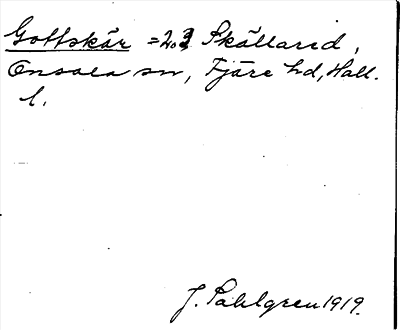 Gottskär = 2.3 Skällared,
Onsala sn, Fjäre hd, Hall.
l.
J. Sahlgren 1919.